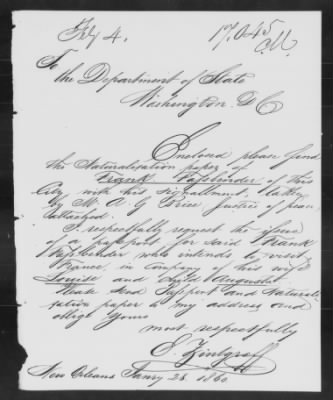 Fy 4.
17,045
To
the Department of State
Washington D C
Enclosed please find
the Naturalisation paper of
Frank Fassbinder of this
City with his signallment taken
by M. A. G Brice, justice of peace
attached.
I respectfully request the favor
of a passport for said Frank
Fassbinder who intends to visit
France, in company of his wife
Louise and child Augusta
Please send Passport and Natural-
sation paper to my address and
oblige yours
most respectfully
E. Zinlgraff
New Orleans Janry 28. 1860